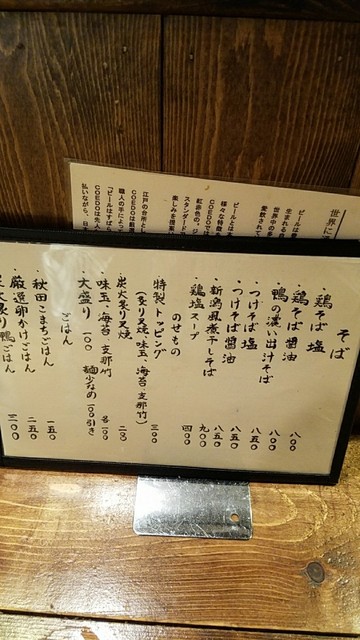 そば
・鶏そば 塩 八〇〇
・鶏そば 醤油 八〇〇
・鴨の濃い出汁そば
・つけそば 塩 八五〇
・つけそば 醤油 八五〇
・新潟風煮干しそば 九〇〇
鶏塩スープ 四〇〇
のせもの
特製トッピング 三〇〇
(炙り叉焼・味玉・海苔・支那竹)
・炭火炙り叉焼 二〇〇
・味玉・海苔・支那竹 各一〇〇
・大盛り 一〇〇 麺少なめ 一〇〇引き
ごはん
・秋田こまちごはん 一五〇
・厳選卵かけごはん 二五〇
炭火炙り鴨ごはん 三〇〇
世界に
ビールは
生まれる
世界中の
愛飲されて
ビールとは
様々な特徴
COEDOで
紅赤色の、
スタンダード
楽しみを提案
江戸の台所とし
COEDOは
職人の手によっ
COEDOは先人
「ビールはすばら
払いながら、日